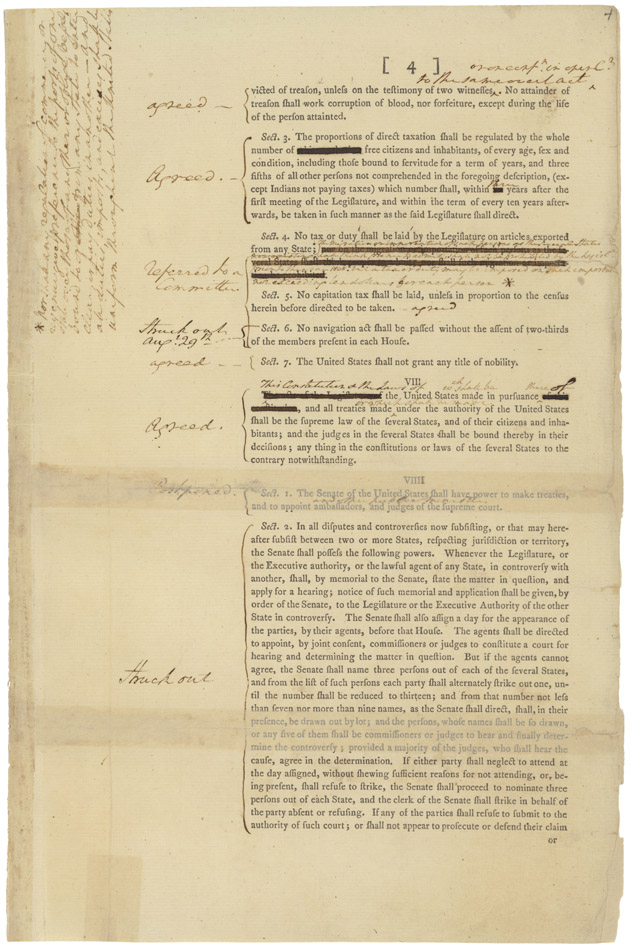 4
[ 4 ]
or on confn. in open Ct.
to the same overt act
agreed —
victed of treason, unless on the testimony of two witnesses. No attainder of
treason shall work corruption of blood, nor forfeiture, except during the life
of the person attained.
Agreed. —
Sect. 3. The proportions of direct taxation shall be regulated by the whole
number of free citizens and inhabitants, of every age, sex and
condition, including those bound to servitude for a term of years, and three
fifths of all other persons not comprehended in the foregoing description, (ex-
cept Indians not paying taxes) which number shall, within three years after the
first meeting of the Legislature, and within the term of every ten years after-
wards, be taken in such manner as the said Legislature shall direct.
Sect. 4. No tax or duty shall be laid by the Legislature on articles exported
from any State;
Referred to a
committee
Sect. 5. No capitation tax shall be laid, unless in proportion to the census
herein before directed to be taken. – agreed
Struck out
Augt. 29th.
Sect. 6. No navigation act shall be passed without the assent of two-thirds
of the members present in each House.
agreed —
Sect. 7. The United States shall not grant any title of nobility.
VIII
This Constitution & the Laws of
Agreed.
the United States made in pursuance
, and all treaties made under the authority of the United States
shall be the supreme law of the several States, and of their citizens and inha-
bitants; and the judges in the several States shall be bound thereby in their
decisions; any thing in the constitutions or laws of the several States to the
contrary notwithstanding.
VIIII
Postponed.
Sect. 1. The Senate of the United States shall have power to make treaties,
and to appoint ambassadors, and judges of the supreme court.
Struck out
Sect. 2. In all disputes and controversies now subsisting, or that may here-
after subsist between two or more States, respecting jurisdiction or territory,
the Senate shall possess the following powers. Whenever the Legislature, or
the Executive authority, or the lawful agent of any State, in controversy with
another, shall, by memorial to the Senate, state the matter in question, and
apply for a hearing; notice of such memorial and application shall be given, by
order of the Senate, to the Legislature or the Executive Authority of the other
State in controversy. The Senate shall also assign a day for the appearance of
the parties, by their agents, before that House. The agents shall be directed
to appoint, by joint consent, commissioners or judges to constitute a court for
hearing and determining the matter in question. But if the agents cannot
agree, the Senate shall name three persons out of each of the several States,
and from the list of such persons each party shall alternately strike out one, un-
til the number shall be reduced to thirteen; and from that number not less
than seven nor more than nine names, as the Senate shall direct, shall, in their
presence, be drawn out by lot; and the persons, whose names shall be so drawn,
or any five of them shall be commissioners or judges to hear and finally deter-
mine the controversy; provided a majority of the judges, who shall hear the
cause, agree in the determination. If either party shall neglect to attend at
the day assigned, without shewing sufficient reasons for not attending, or, be-
ing present, shall refuse to strike, the Senate shall proceed to nominate three
persons out of each State, and the clerk of the Senate shall strike in behalf of
the party absent or refusing. If any of the parties shall refuse to submit to the
authority of such court; or shall not appear to prosecute or defend their claim
or